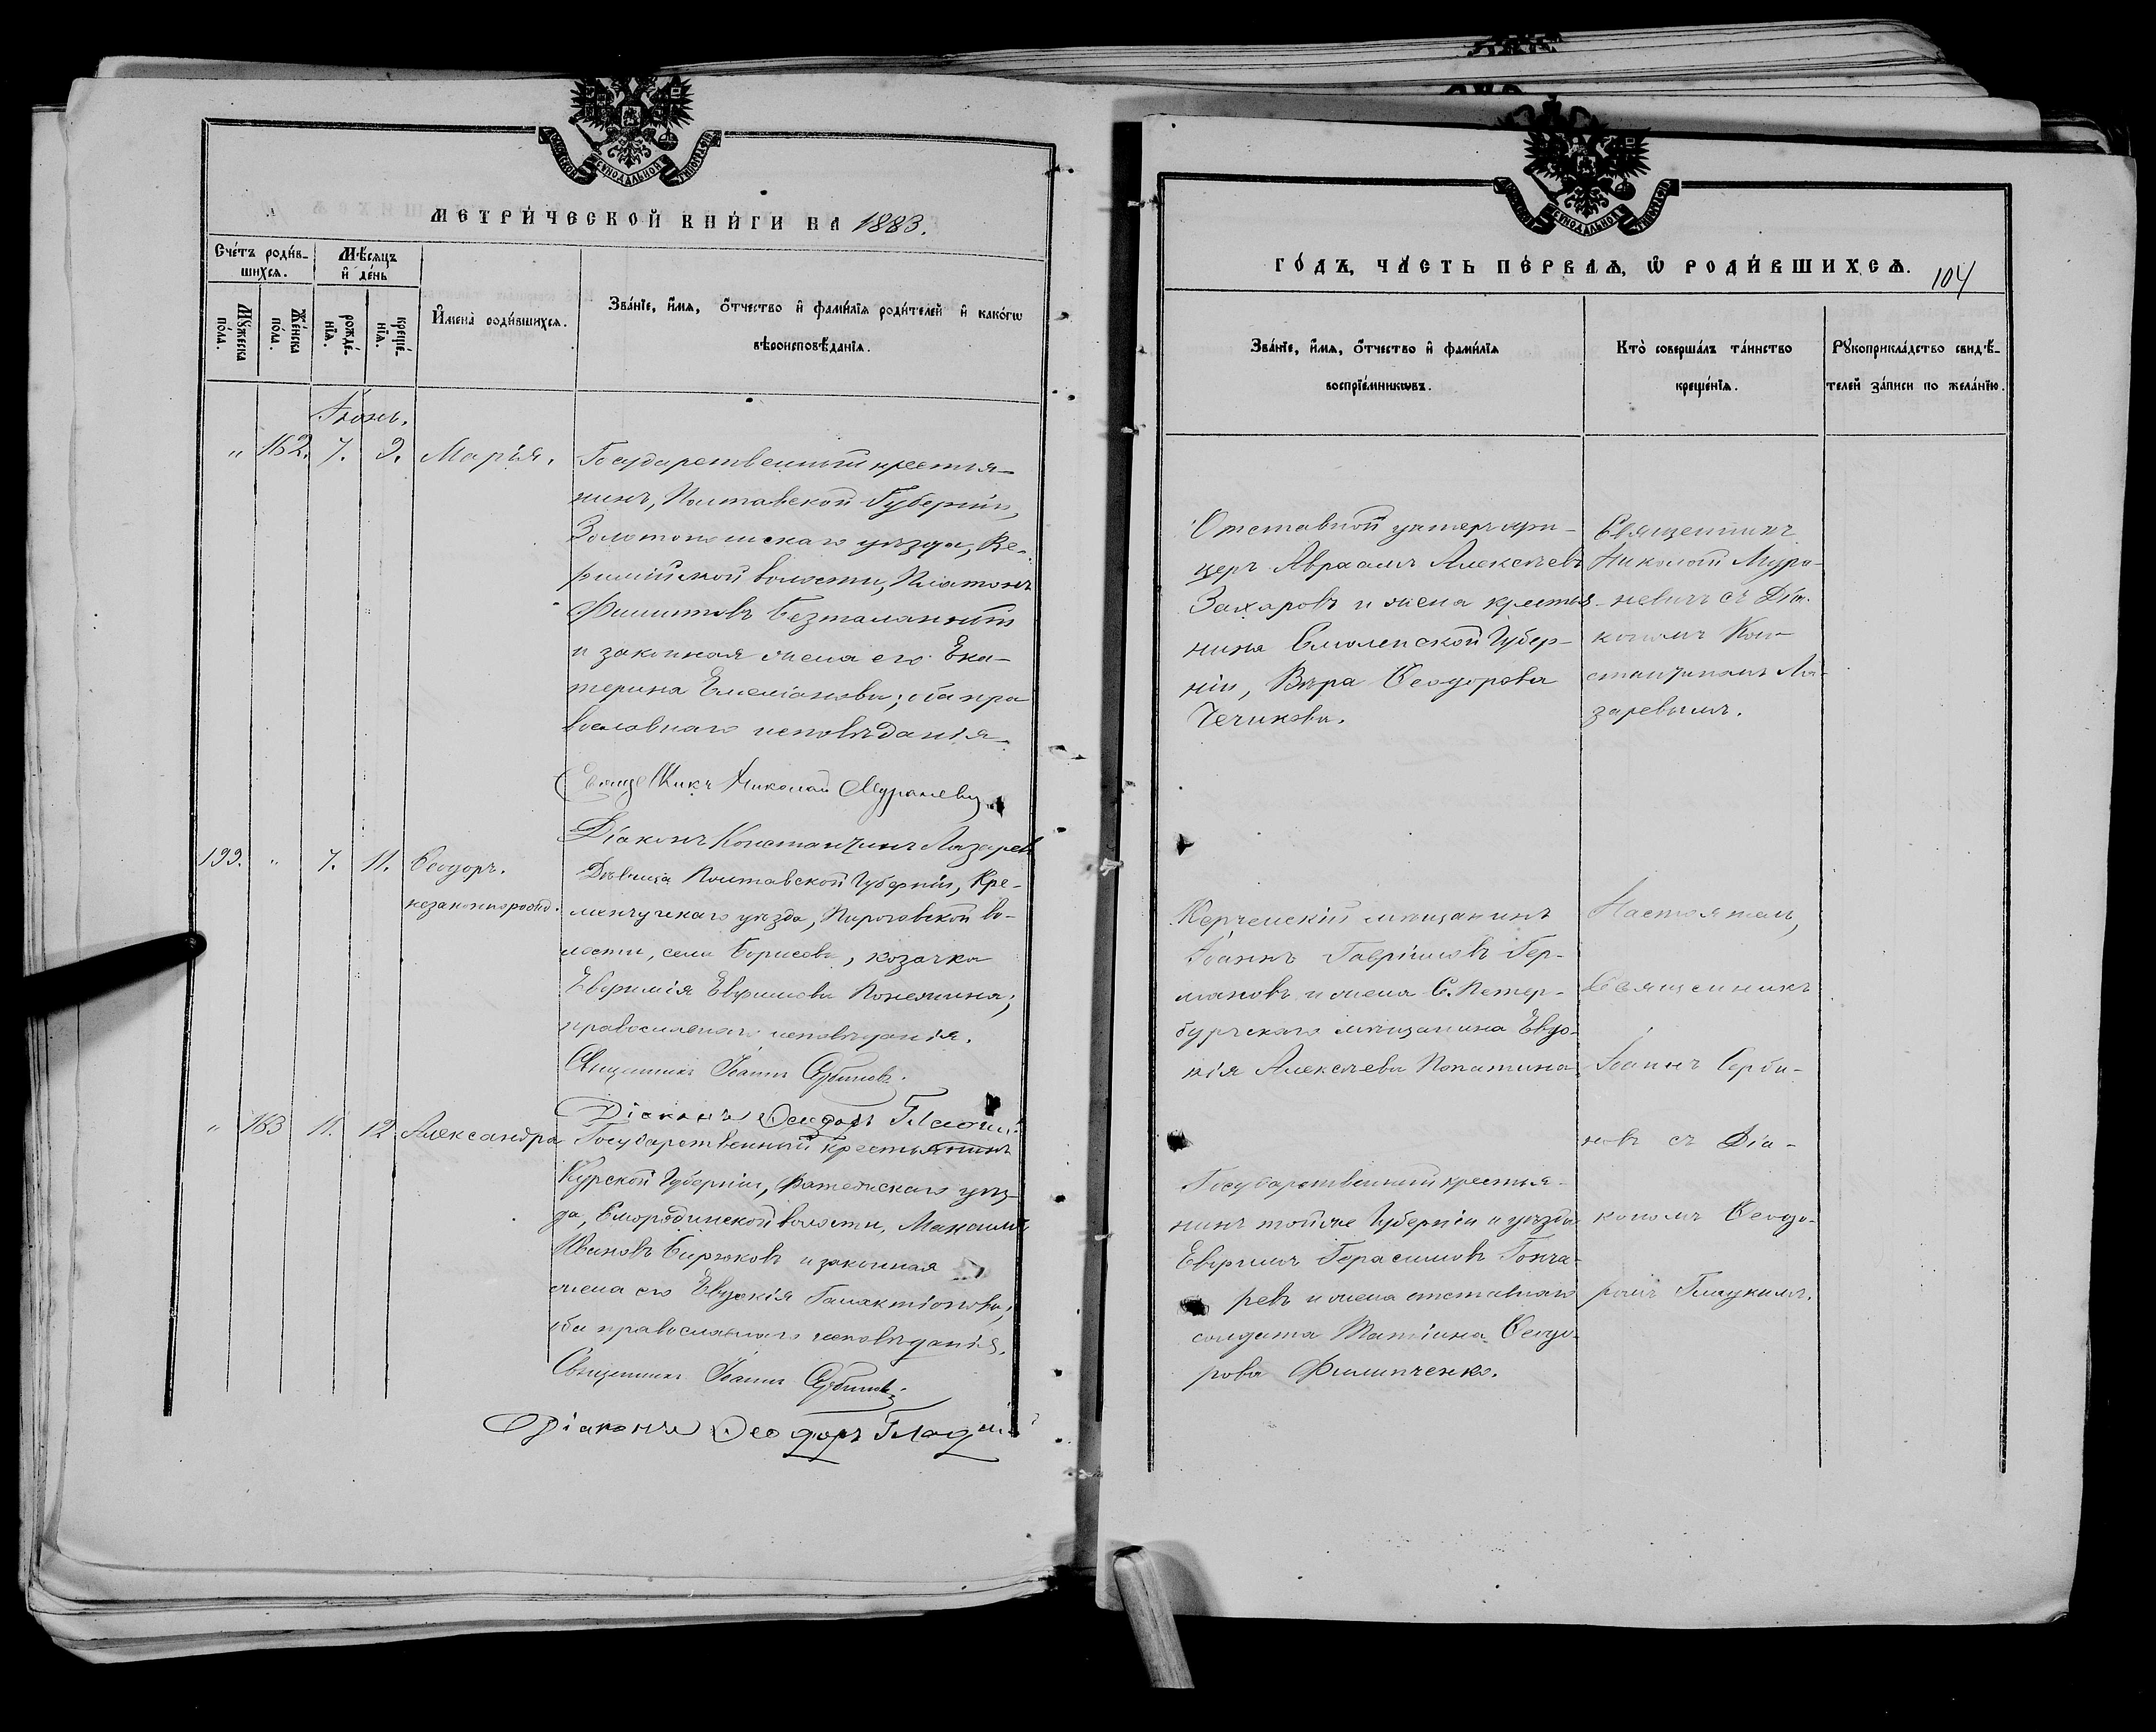 МЕТРИ́ЧЕСКОЙ КНИ́ГИ НА 1883.
Сче́тъ роди́в-
шихсѧ.
Мѣ́сѧцъ
и҆ де́нь
Мꙋ́жеска
по́ла.
Же́нска
по́ла.
рожде́-
нїѧ.
креще́-
нїѧ.
И҆мена̀ роди́вшихсѧ.
Зва́нїе, и҆́мѧ, ѻ҆́тчество и҆ фами́лїѧ роди́телей и҆ како́гѡ
вѣроисповѣ́данїѧ.
Іюнь.
" 162. 7. 9. Марія.
Государственный крестья-
нинъ, Полтавской Губерніи,
Золотоношскаго уѣзда, Ве-
ремійской волости, Платонъ
Филиповъ Безталанный
и законная жена его Ека-
терина Емеліанова; оба пра
вославнаго исповѣданія.
Священникъ Николай Мураневичъ
Діаконъ Константинъ Лазарев
199. " 7. 11. Ѳеодоръ.
незаконнорожд.
Дѣвица Полтавской Губерніи, Кре-
менчугскаго уѣзда, Пироговской во-
лости, села Борисова, козачка
Евфимія Евфимова
православнаго исповѣданія.
Священникъ Іоаннъ Сербиновъ.
Діаконъ Ѳеодоръ Гладкій
" 163 11. 12. Александра
Государственный крестьянинъ
Курской Губерніи, Фатежскаго уѣз-
да, Смородинской волости, Мануилъ
Ивановъ Бирюковъ и законная
жена его Евдокія Галактіонова,
оба православнаго исповѣданія.
Священникъ Іоаннъ Сербиновъ.
Діаконъ Ѳеодоръ Гладкій
ГО́ДЪ, ЧА́СТЬ ПЕ́РВАѦ, Ѡ҆ РОДИ́ВШИХСѦ.
104
Зва́нїе, и҆́мѧ, ѻ҆́тчество и҆ фами́лїѧ
воспрїе́мникѡвъ.
Кто̀ соверша́лъ та́инство
креще́нїѧ.
Рꙋкоприкла́дство свидѣ́-
телей за́писи по жела́нїю.
Отставной унтеръ офи-
церъ Авраамъ Алексѣевъ
Захаровъ и жена крестья-
нина Смоленской Губер-
ніи, Вѣра Ѳеодорова
Чечикова.
Священникъ
Николай Мура-
невичъ съ Діа-
кономъ Кон-
стантиномъ Ла-
заревымъ.
Керченскій мѣщанинъ
Іоаннъ Гавріиловъ Гер-
мановъ и жена С. Петер-
бургскаго мѣщанина Евдо-
кія Алексѣева Лопатина.
Настоятель,
Священникъ
Іоаннъ Серби-
новъ съ Діа-
кономъ Ѳеодо-
ромъ Гладкимъ.
Государственный крестья-
нинъ тойже Губерніи и уѣзда
Евфимъ Герасимовъ Гонча-
ревъ и жена отставнаго
солдата Татіана Ѳеодо-
рова Филипченко.